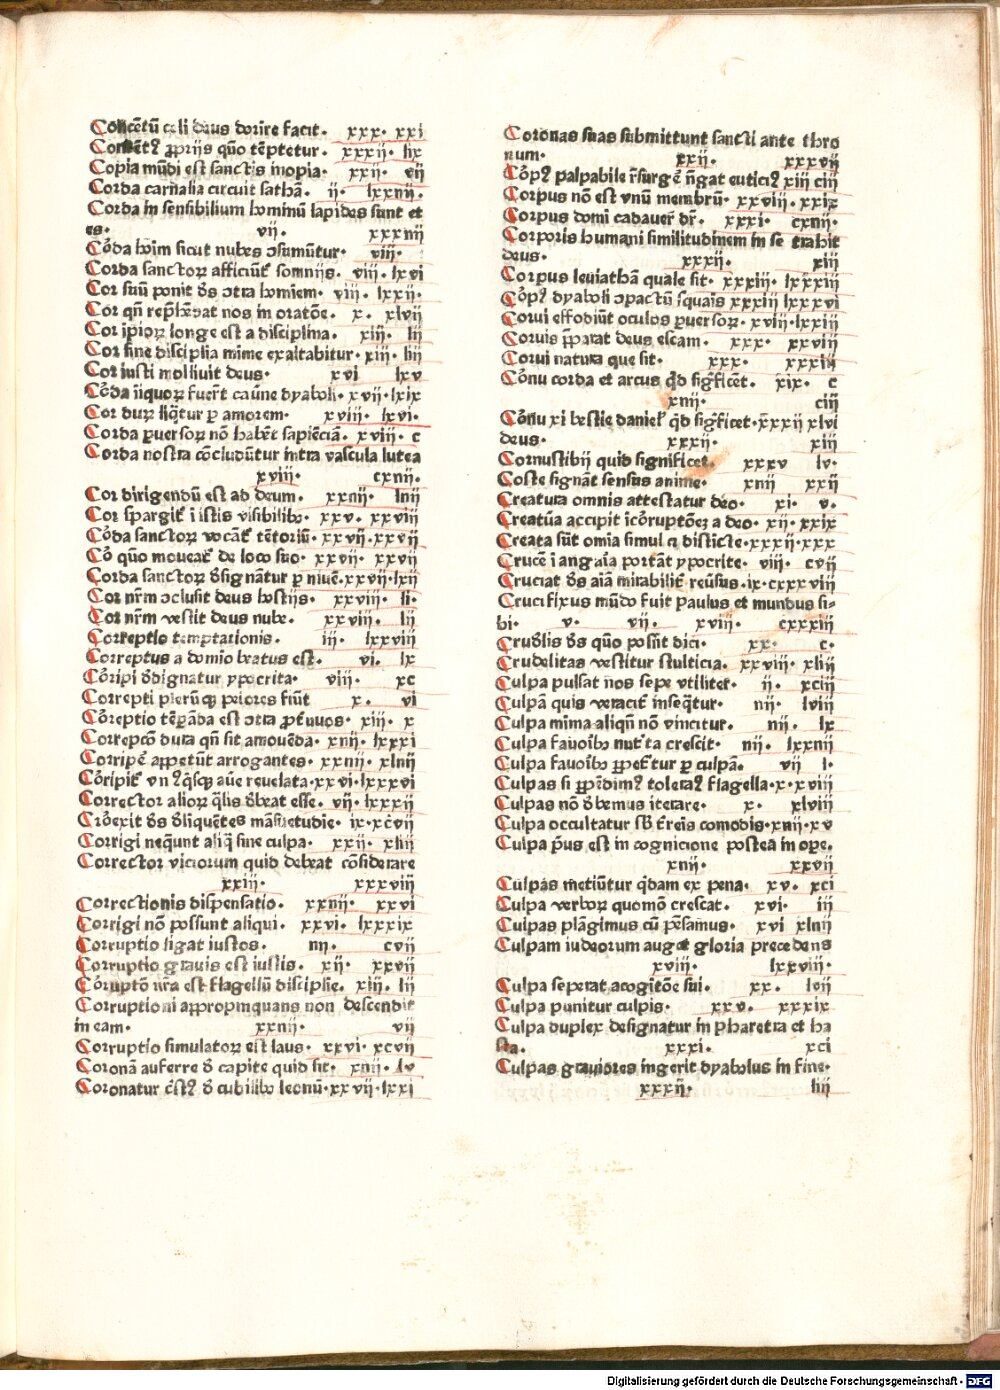 Concētū celi deus dorire facit. xxx. xxi
Contēt? ꝓprijs quō tēptetur. xxxij. lix
Copia mūdi est sanctis inopia. xxij. vij
Corda carnalia circuit sathā. ij. lxxiiij.
Corda in sensibilium hominū lapides sunt et
es. vij. xxxiiij
Cōda hōim sicut nubes ↄsumūtur. viij.
Corda sanctoꝝ afficiūt somnijs. viij. lxvi
Cor suū ponit ds ↄtra hominem. viij. lxxij.
Cor qn̄ rephēdat nos in oratōe. x. xlvij
Cor ipioꝝ longe est a disciplina. xiij. lij
Cor sine disciplia mime exaltabitur. xiij. liij
Cor iusti molliuit deus. xvi lxv
Cōda iiquoꝝ fuerūt cauīne dyaboli. xvij. lxix
Cor duꝝ liq̄tur ꝑ amorem. xviij. lxvi.
Corda ꝑuersoꝝ nō habēt sapiēciā. xviij. c
Corda nostra cōcluduntur intra vascula lutea
xviij. cxiiij.
Cor dirigendū est ad deum. xxiiij. liiij
Cor spargit i istis visibilibꝰ. xxv. xxviij
Cōda sanctoꝝ vocāt tētoriū. xxvij. xxvij
Cō quō moueat de loco suo. xxvij. xxvij
Corda sanctoꝝ dsignātur ꝑ niuē. xxvij. lxij
Cor nr̄m ↄclusit deus hostijs. xxviij. li.
Cor nr̄m vestit deus nube. xxviij. lij
Correptio temptationis. iij. lxxviij
Correptus a domio beatus est. vi. lx
Cōripi ddignatur ypocrita. viij. xc
Correpti pleruqꝫ peiores fiūt x. vi
Cōreptio tēꝑāda est ↄtra ꝓteruos. xiij. x
Correpcō dura qn̄ sit amouēda. xiiij. lxxxi
Corripē appetūt arrogantes. xxiiij. xliiij
Cōripit vn? qsqꝫ aūe reuelata. xxvi. lxxxvi
Corrector alioꝝ qlis dbeat esse. vij. lxxxij
Crōexit ds dliquētes māsuetudie. ix. xcvij
Corrigi nequnt aliq sine culpa. xxij. xliij
Corrector viciorum quid debeat cōsiderare
xxiij. xxxviij
Correctionis dispensatio. xxiiij. xxvi
Corrigi nō possunt aliqui. xxvi. lxxxix
Corruptio ligat iustos. iiij. cvij
Corruptio grauis est iustis. xij. xxvij
Cōruptō nr̄a est flagellū discipline. xiij. lij
Corruptioni appropinquans non descendit
in eam. xxiiij. vij
Corruptio simulatoꝝ est laus. xxvi. xcvij
Coronā auferre d capite quid sit. xiiij. lv
Coronatur c̄st? d cubilibꝰ leonū. xxvij. lxxi
Coronas suas submittunt sancti ante thro
num. xxij. xxxvij
Cōp? palpabile r̄surgē n̄gat eutici? xiij ciij
Corpus nō est vnū membrū. xxviij. xxix
Corpus domi cadauer dr̄. xxxi. cxiiij.
Corporis humani similitudinem in se trahit
deus. xxxij. xiij
Corpus leuiathā quale sit. xxxiij. lxxxiij
Cōp? dyaboli ↄpactū squāis xxxiij lxxxvi
Corui effodiūt oculos ꝑuersoꝝ. xviij. lxxiij
Coruis ꝓparat deus escam. xxx. xxviij
Corui natura que sit. xxx. xxxiij
Cōnu corda et arcus qd significet. xix. c
xiiij. ciij
Cōnu xi bestie daniel qd significet. xxxij xlvi
deus. xxxij. xiij
Cornustibij quid significet. xxxv lv.
Coste signāt sensus anime. xiiij xxij
Creatura omnis attestatur deo. xi. v.
Creatūa accipit icōruptōeꝫ a deo. xij. xxix
Creata sūt omia simul q disticte. xxxij. xxx
Crucē i angraia portāt ypocrite. viij. cvij
Cruciat ds aīa mirabilit̄ reūsus. ix. cxxxviij
Crucifixus mūdo fuit paulus et mundus si-
bi. v. vij. xviij. cxxxiij
Crudlis ds quō posīt dici. xx. c.
Crudelitas vestitur stulticia. xxviij. xliij
Culpa pulsat nos sepe vtiliter. ij. xciij
Culpā quis veracit̄ inseqtur. iiij. lviij
Culpa mīma aliqn̄ nō vincitur. iiij. lx
Culpa fauoribꝰ nut̄ta crescit. iiij. lxxiiij
Culpa fauoibꝰ ꝓfertur ꝑ culpā. vij l.
Culpas si ꝓpēdim? tolerat flagella. x. xviij
Culpas nō dbemus iterare. x. xlviij
Culpa occultatur sb t̄reis comodis. xiiij. xv
Culpa p̄us est in cognicione postea in ope.
xiiij. xxvij
Culpas metiūtur qdam ex pena. xv. xci
Culpa verboꝝ quomō crescat. xvi. iij
Culpas plāgimus cū pēsamus. xvi xliiij
Culpam iudeorum auget gloria precedens
xviij. lxxviij.
Culpa seperat acogitōe sui. xx. lvij
Culpa punitur culpis. xxv. xxxix
Culpa duplex designatur in pharetra et ha
sta. xxxi. xci
Culpas grauiores ingerit dyabolus in fine.
xxxij. liij
Digitalisierung gefördert durch die Deutsche Forschungsgemeinschaft - DFG